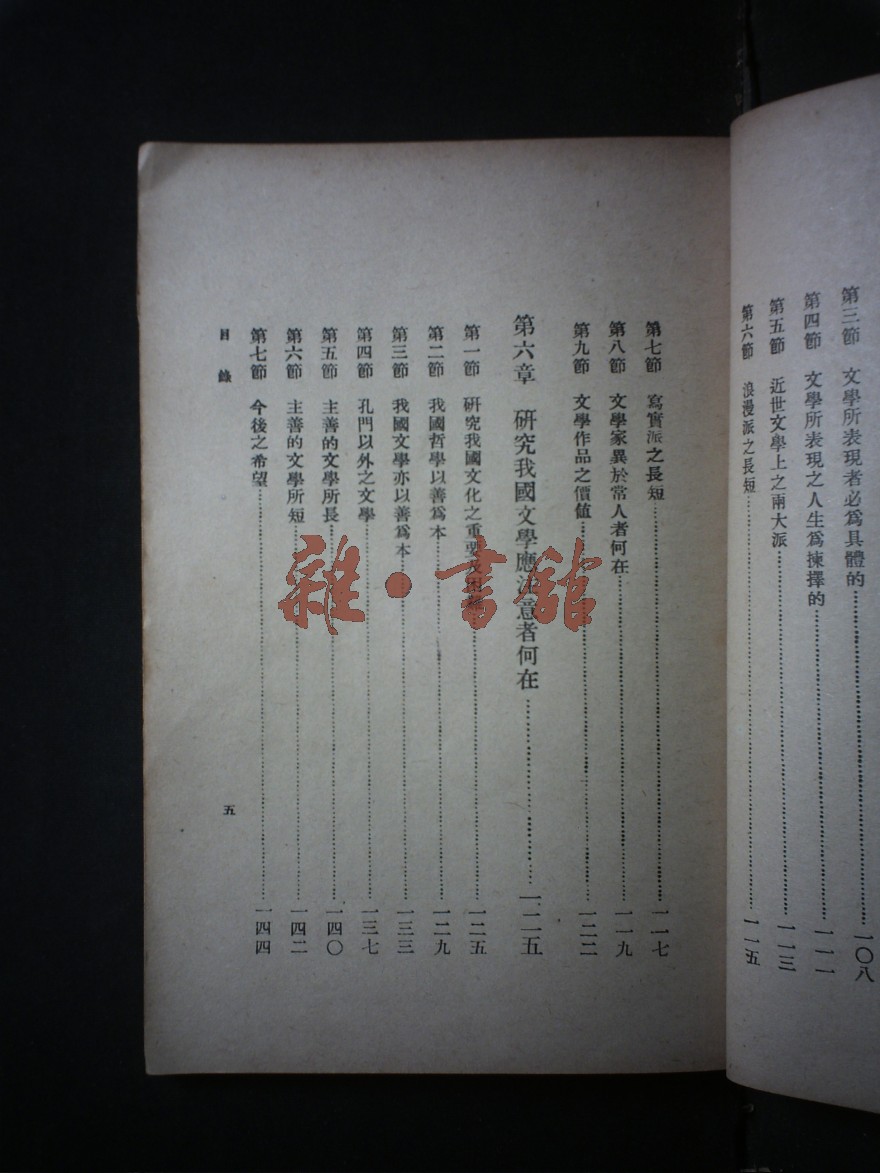 第三節 文學所表現者必爲具體的……一〇八
第四節 文學所表現之人生爲揀擇的……一一一
第五節 近世文學上之兩大派……一一三
第六節 浪漫派之長短……一一五
第七節 寫實派之長短……一一七
第八節 文學家異於常人者何在……一一九
第九節 文學作品之價值……一二二
第六章 研究我國文學應注意者何在……一二五
第一節 研究我國文化之重要及困難……一二五
第二節 我國哲學以善爲本……一二九
第三節 我國文學亦以善爲本……一三三
第四節 孔門以外之文學……一三七
第五節 主善的文學所長……一四〇
第六節 主善的文學所短……一四二
第七節 今後之希望……一四四
目錄
五
雜·書舘